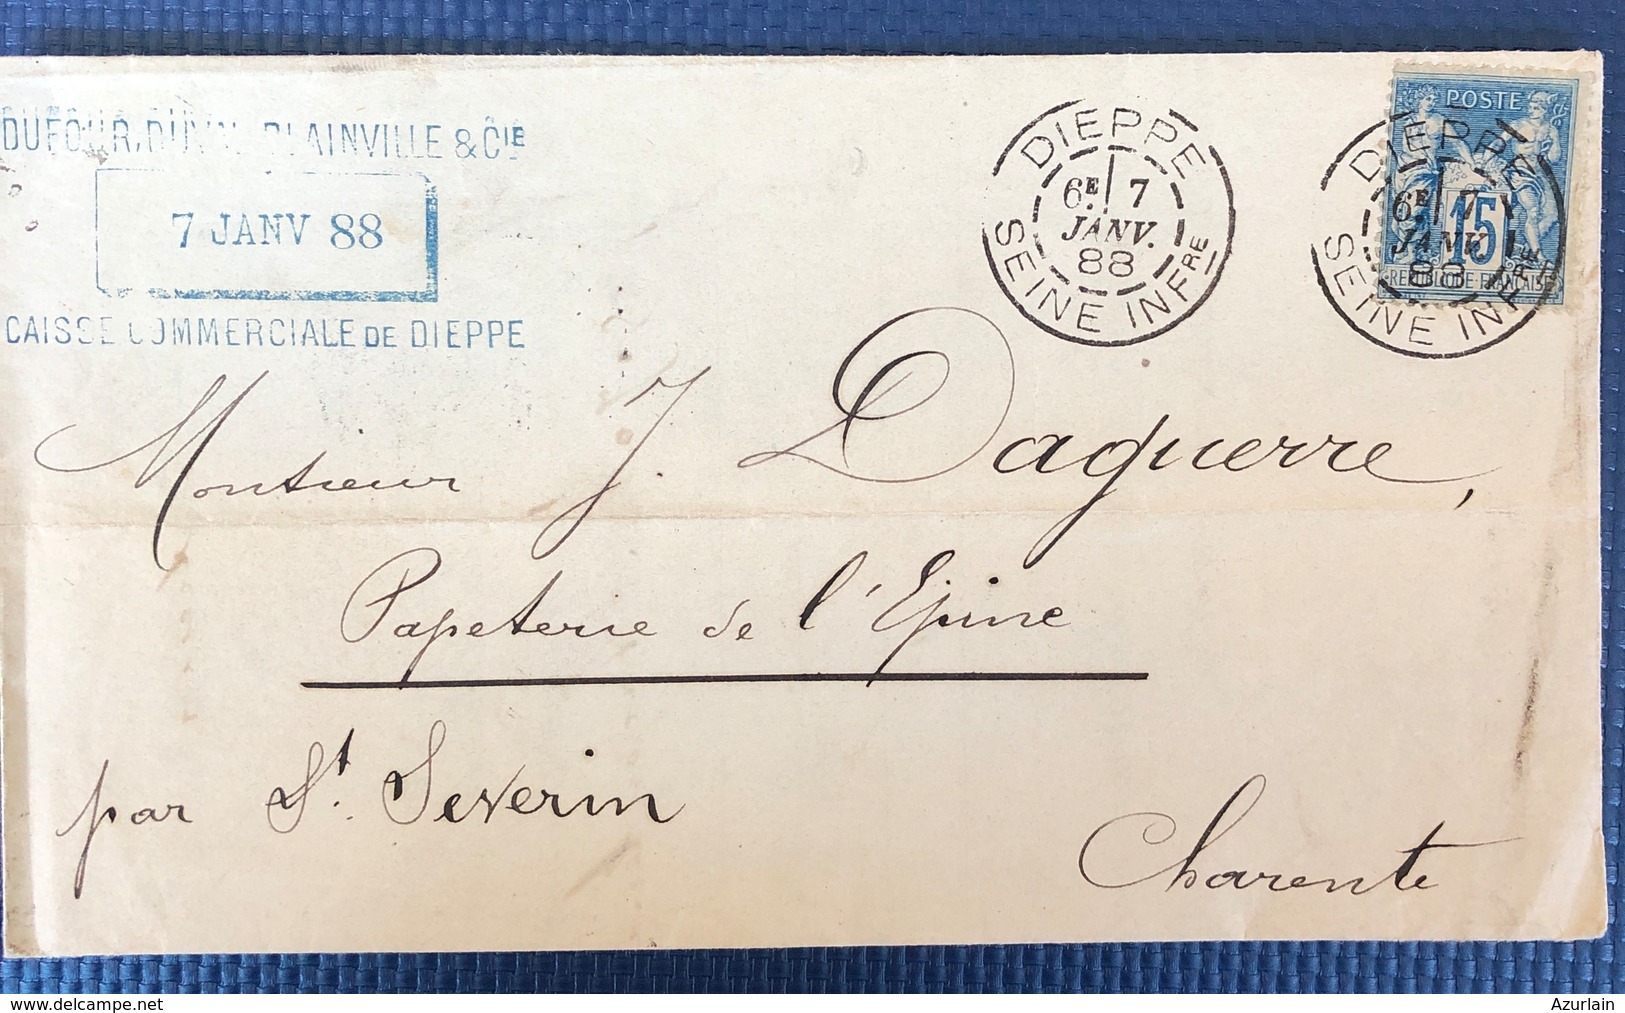 DUFOUR, DUVAL BLAINVILLE & CIE
7 JANV 88
CAISSE COMMERCIALE DE DIEPPE
DIEPPE
6E 7
JANV.
88
SEINE INFRE
POSTE
15
REPUBLIQUE FRANÇAISE
DIEPPE
6E 7
JANV.
88
SEINE INFRE
Monsieur J. Daguerre,
Papeterie de l'Epine
par St. Severin
Charente
www.delcampe.net
Azurlain